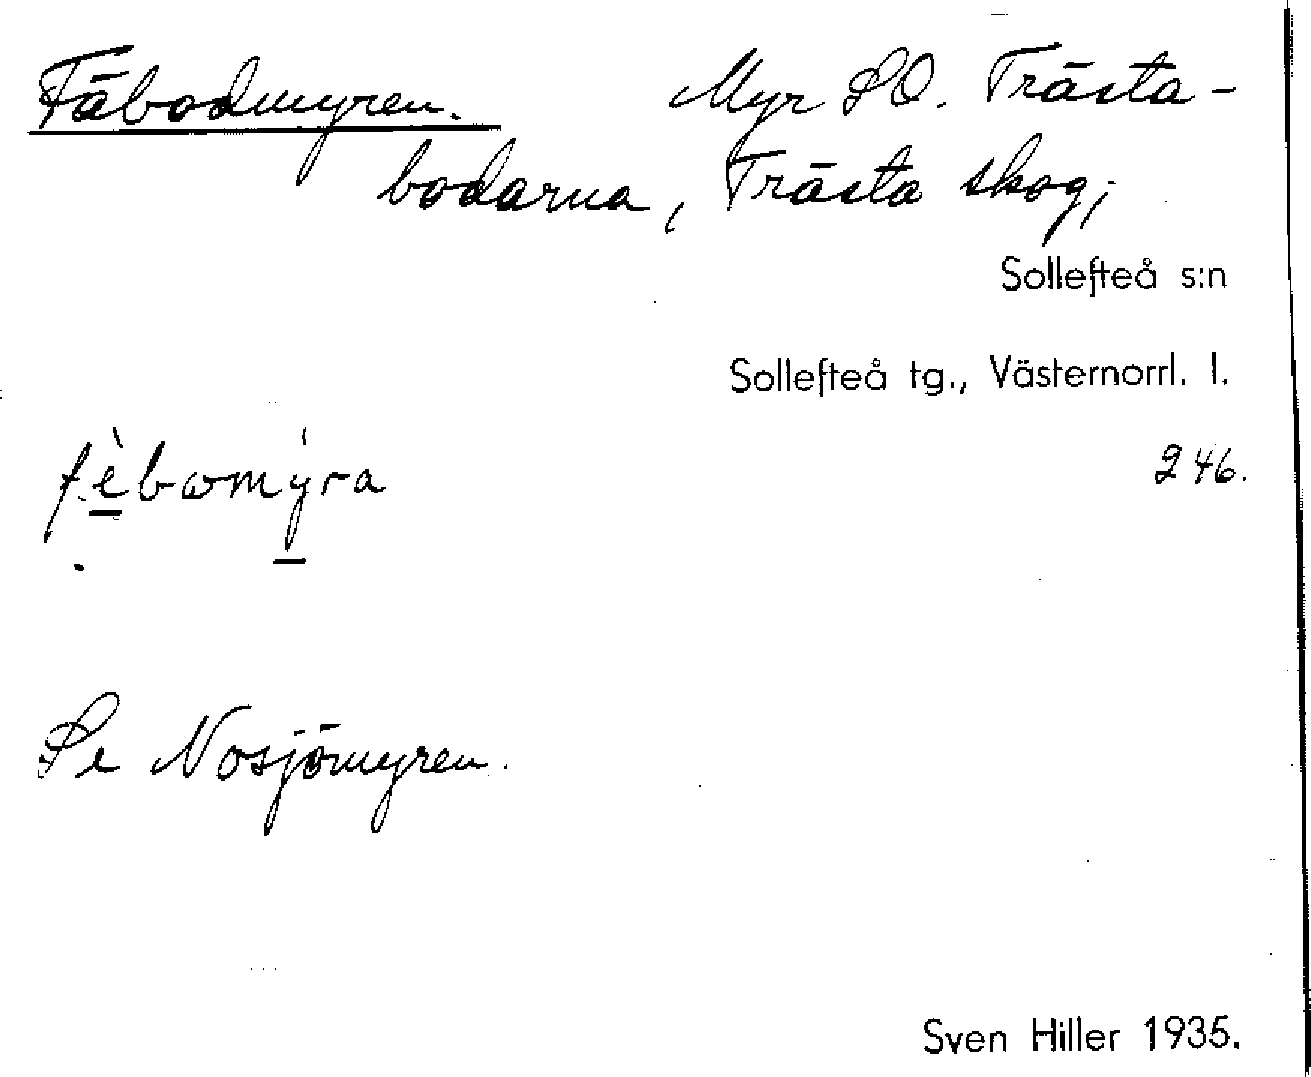 Fäbodmyren. Myr SO. Trästa-
bodarna, Trästa skog;
Sollefteå s:n
Sollefteå tg., Västernorrl. l.
246.
fèbωmýra
Se Nosjömyren.
Sven Hiller 1935.